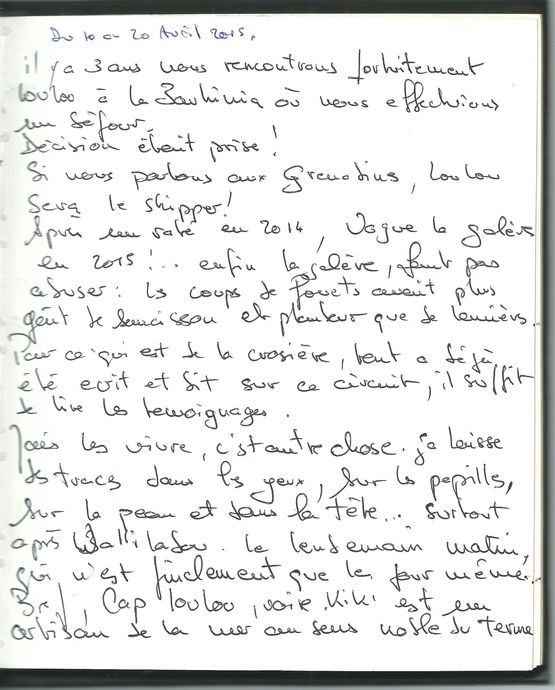 Du 10 au 20 Avril 2015.
il y a 3 ans nous rencontrons fortuitement
Loulou à la Bauhinia où nous effectuions
un séjour.
Décision était prise !
Si nous partons aux Grenadins, Loulou
Sera le skipper !
Après un raté en 2014, Vogue la galère
en 2015 !.. enfin la galère, faut pas
abuser : les coups de fouets avait plus
goût de saucisson et planteur que de lanières.
Pour ce qui est de la croisière, tout a déjà
été ecrit et dit sur ce circuit, il suffit
de lire les temoignages.
Mais les vivre, c'st autre chose. ça laisse
des traces dans les yeux, sur les papilles,
sur la peau et dans la tête... surtout
après Wallilabou. le lendemain matin,
qui n'est finalement que le jour même.
Bref, Cap loulou, voire Kiki est un
artisan de la mer au sens noble du terme